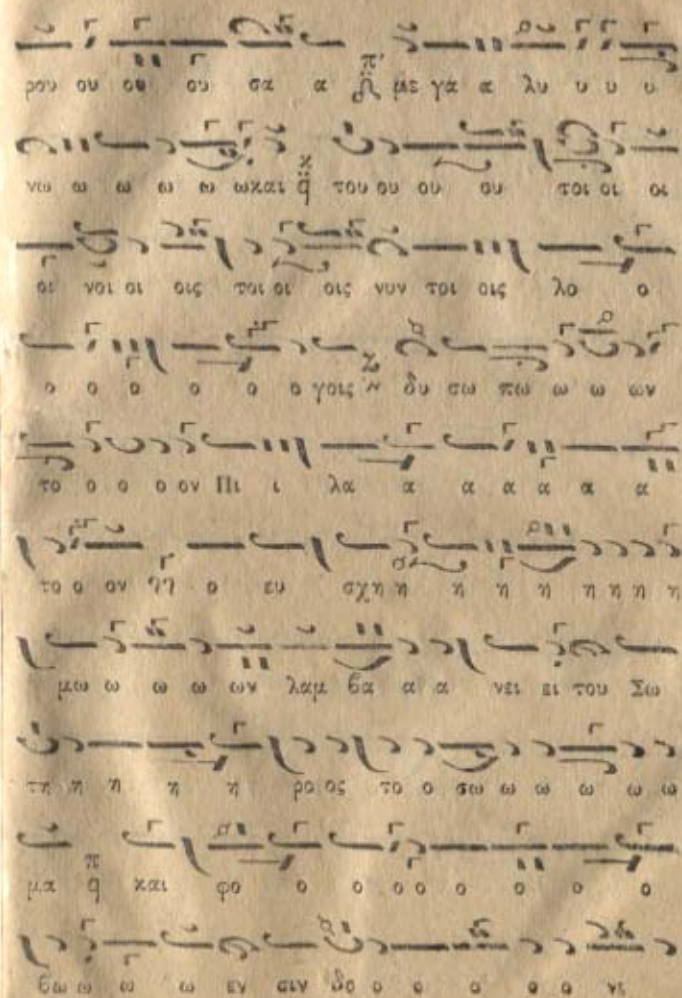 ρου ου ου ου σα α με γα α λυ υ υ υ
νω ω ω ω ω ω και του ου ου ου τοι οι οι
οι νοι οι οις τοι οι οις νυν τοι οις λο ο
ο ο ο ο ο ο γοις δυ σω πω ω ω ων
το ο ο ο ον Πι ι λα α α α α α α
το ο ον ο ευ σχη η η η η η η η
μω ω ω ω ων λαμ βα α α νει ει του Σω
τη η η η η ρο ος το ο σω ω ω ω ω ω
μα και φο ο ο ο ο ο ο ο ο
βω ω ω ω εν σιν δο ο ο ο ο ο νε